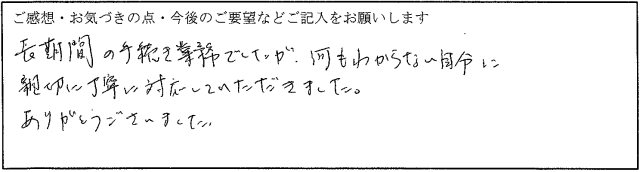 ご感想・お気づきの点・今後のご要望などご記入をお願いします
長期間の手続き業務でしたが、何もわからない自分に
親切に丁寧に対応していただきました。
ありがとうございました。